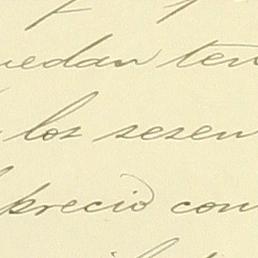 uedan ten
los sesen
precio con